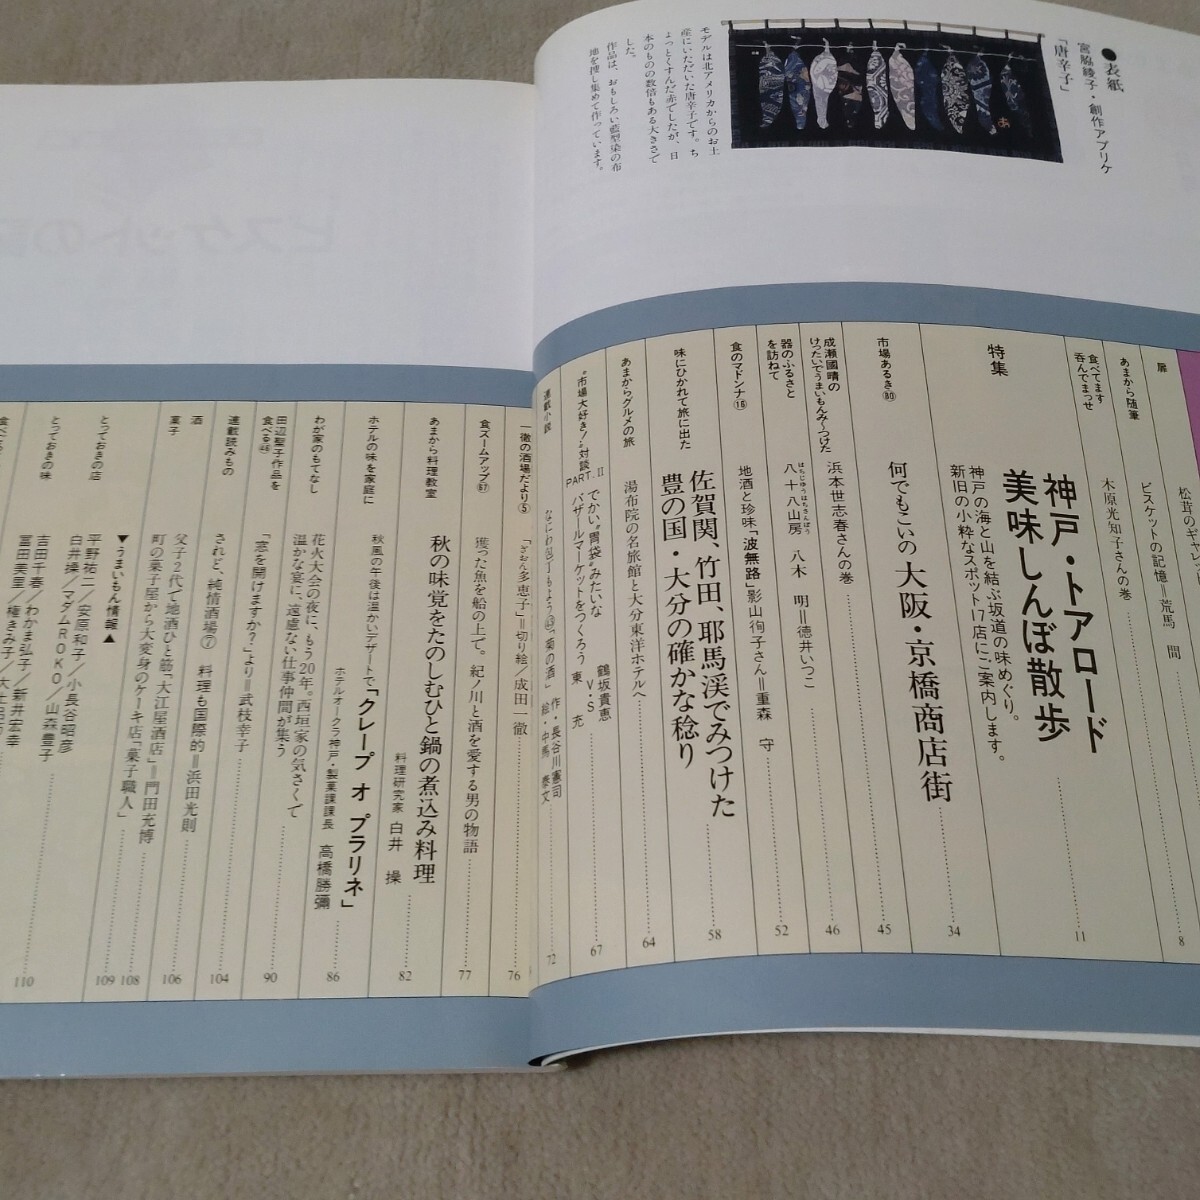 ●表紙
宮脇綾子・創作アプリケ
「唐辛子」
モデルは北アメリカからのお土
産にいただいた唐辛子です。ち
ょっとくすんだ赤でしたが、日
本のものの数倍もある大きさで
した。
作品は、おもしろい藍型染の布
地を捜し集めて作っています。
扉
松茸のギャレッ
あまから随筆
ビスケットの記憶=荒馬 間
8
食べてます
呑んでまっせ
木原光知子さんの巻
特集
神戸・トアロード
美味しんぼ散歩
11
神戸の海と山を結ぶ坂道の味めぐり。
新旧の小粋なスポット17店にご案内します。
34
市場あるき80
何でもこいの大阪・京橋商店街
45
成瀬國晴の
けったいでうまいもんみ〜つけた
浜本世志春さんの巻
46
器のふるさと
を訪ねて
八十八山房 八木 明=徳井いつこ
はちじゅうはちさんぼう
52
食のマドンナ16
地酒と珍味「波無路」影山徇子さん=重森 守
味にひかれて旅に出た
佐賀関、竹田、耶馬渓でみつけた
豊の国・大分の確かな稔り
58
あまからグルメの旅
湯布院の名旅館と大分東洋ホテルへ
64
"市場大好き!"対談
PART.II
でかい"胃袋"みたいな
バザールマーケットをつくろう
鶴坂貴恵
VS
東 充
67
連載小説
なにわ包丁もよう43「菊の酒」
作・長谷川憲司
絵・中馬泰文
72
一徹の酒場だより5
「ぎおん多恵子」=切り絵/成田一徹
76
食ズームアップ67
獲った魚を船の上で。紀ノ川と酒を愛する男の物語
77
あまから料理教室
秋の味覚をたのしむひと鍋の煮込み料理
料理研究家 白井 操
82
ホテルの味を家庭に
秋風の午後は温かいデザートで「クレープ オ プラリネ」
ホテルオークラ神戸・製菓課課長 高橋勝彌
86
わが家のもてなし
花火大会の夜に、もう20年。西垣家の気さくで
温かな宴に、遠慮ない仕事仲間が集う
90
田辺聖子作品を
食べる46
「窓を開けますか?」より=武枝幸子
連載読みもの
されど、純情酒場⑦ 料理も国際的=浜田光則
104
酒
父子2代で地酒ひと筋「大江屋酒店」=門田充博
106
菓子
町の菓子屋から大変身のケーキ店「菓子職人」
108
▼うまいもん情報▲
109
とっておきの店
平野祐二/安原和子/小長谷昭彦
白井操/マダムROKO/山森豊子
とっておきの味
吉田千春/わかま弘子/新井宏幸
110